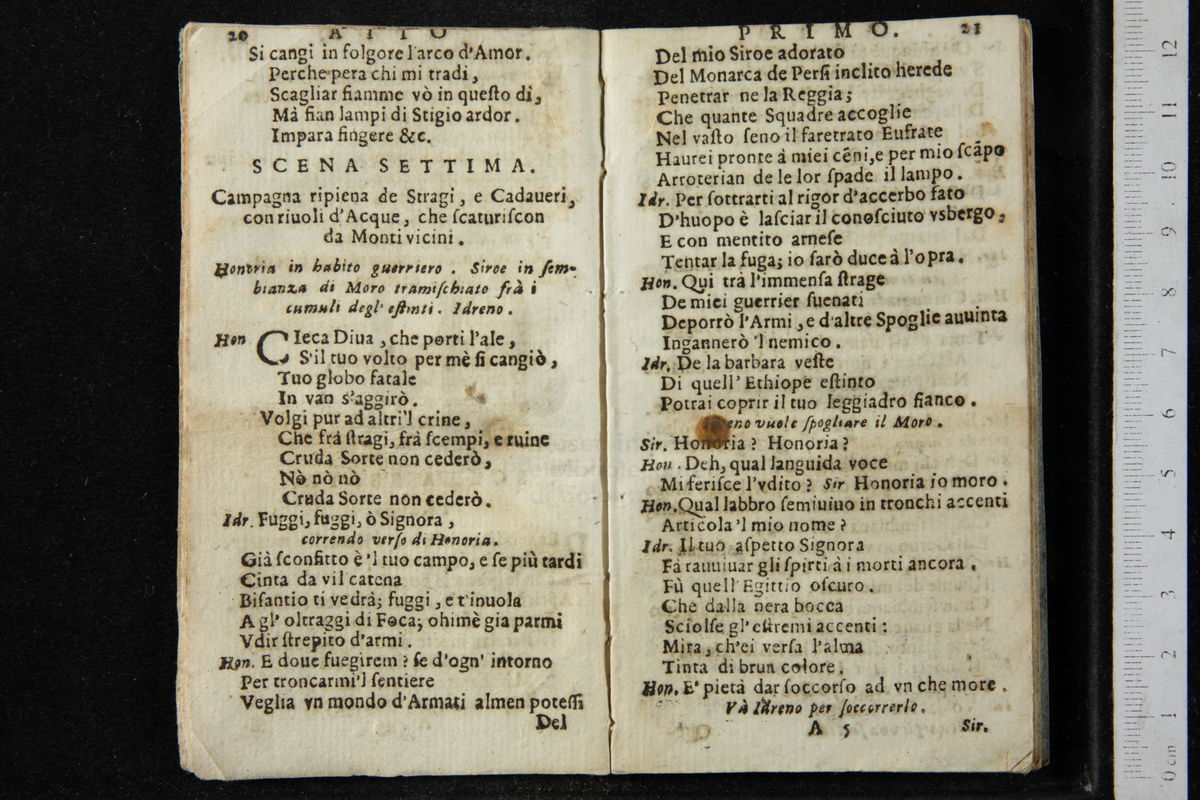 20 ATTO
Si cangi in folgore l'arco d'Amor.
Perche pera chi mi tradi,
Scagliar fiamme vò in queſto di,
Mà fian lampi di Stigio ardor.
Impara fingere &c.
SCENA SETTIMA.
Campagna ripiena de Stragi, e Cadaueri,
con riuoli d'Acque, che ſcaturiſcon
da Monti vicini.
Honoria in habito guerriero. Siroe in ſem-
bianza di Moro tramiſchiato frà i
cumuli degl' eſtinti. Idreno.
Hon CIeca Diua, che porti l'ale,
S'il tuo volto per mè ſi cangiò,
Tuo globo fatale
In van s'aggirò.
Volgi pur ad altri'l crine,
Che frá ſtragi, frá ſcempi, e ruine
Cruda Sorte non cederò,
Nò nò nò
Cruda Sorte non cederò.
Idr. Fuggi, fuggi, ò Signora,
correndo verſo di Honoria.
Già ſconfitto è 'l tuo campo, e ſe più tardi
Cinta da vil catena
Biſantio ti vedrà; fuggi, e t'inuola
A gl' oltraggi di Foca; ohimè gia parmi
Vdir ſtrepito d'armi.
Hon. E doue fuegirem? ſe d'ogn' intorno
Per troncarmi'l ſentiere
Veglia vn mondo d'Armati almen poteſſi
Del
PRIMO. 21
Del mio Siroe adorato
Del Monarca de Perſi inclito herede
Penetrar ne la Reggia;
Che quante Squadre accoglie
Nel vaſto ſeno il faretrato Eufrate
Haurei pronte á miei cēni, e per mio ſcāpo
Arroterian de le lor ſpade il lampo.
Idr. Per ſottrarti al rigor d'accerbo fato
D'huopo è laſciar il conoſciuto vsbergo,
E con mentito arneſe
Tentar la fuga; io ſarò duce à l'opra.
Hon. Qui trà l'immenſa ſtrage
De miei guerrier ſuenati
Deporrò l'Armi, e d'altre Spoglie auuinta
Ingannerò 'l nemico.
Idr. De la barbara veſte
Di quell' Ethiope eſtinto
Potrai coprir il tuo leggiadro fianco.
vuole ſpogliare il Moro.
Sir. Honoria? Honoria?
Hon. Deh, qual languida voce
Mi feriſce l'vdito? Sir Honoria io moro.
Hon. Qual labbro ſemiuiuo in tronchi accenti
Articola 'l mio nome?
Idr. Il tuo aſpetto Signora
Fà rauuiuar gli ſpirti à i morti ancora.
Fù quell' Egittio oſcuro.
Che dalla nera bocca
Sciolſe gl' eſtremi accenti:
Mira, ch'ei verſa l'alma
Tinta di brun colore.
Hon. E' pietà dar ſoccorſo ad vn che more.
Và Idreno per ſoccorrerlo.
A 5 Sir.